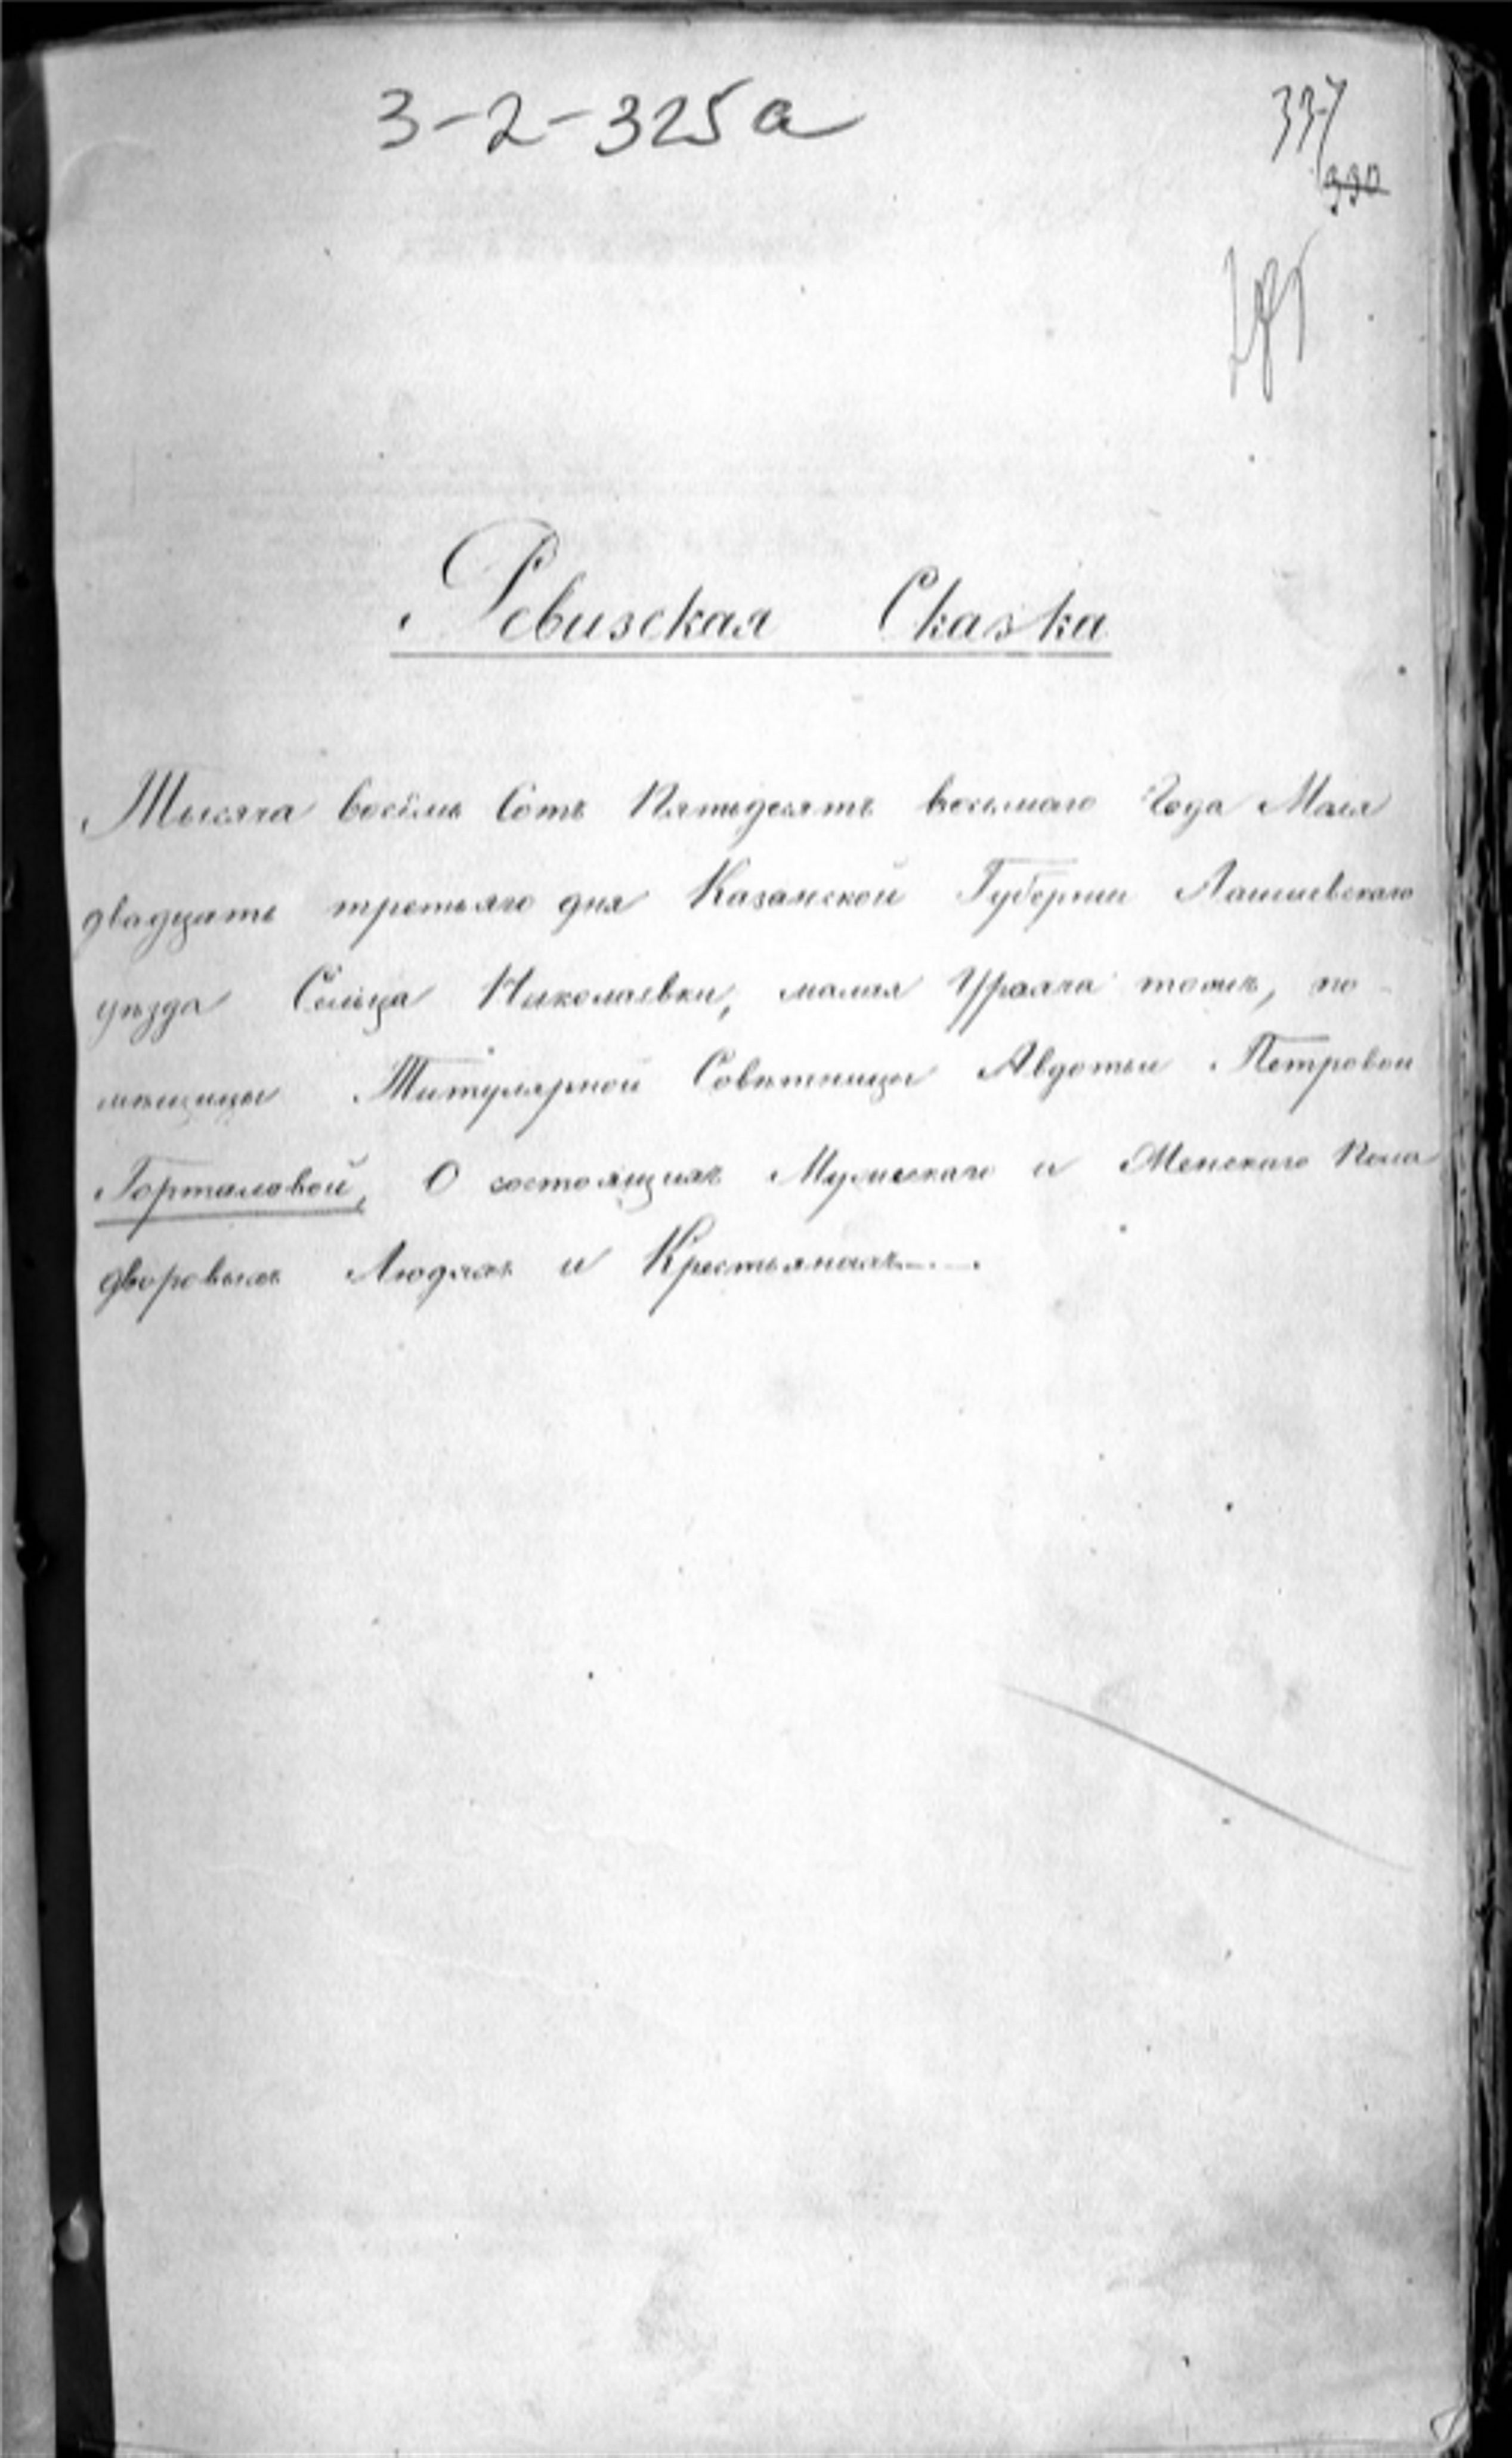 3-2-325а
337
330
Ревизская Сказка
Тысяча восемь Сотъ Пятьдесятъ восьмаго Года Маія
двадцать третьяго дня Казанской Губерніи Лаишевскаго
уѣзда Сельца Николаевки, малая Ураяча тожъ, по-
мѣщицы Титулярной Совѣтницы Авдотьи Петровой
Горталовой, О состоящихъ Мужескаго и Женскаго Пола
дворовыхъ Людяхъ и Крестьянахъ